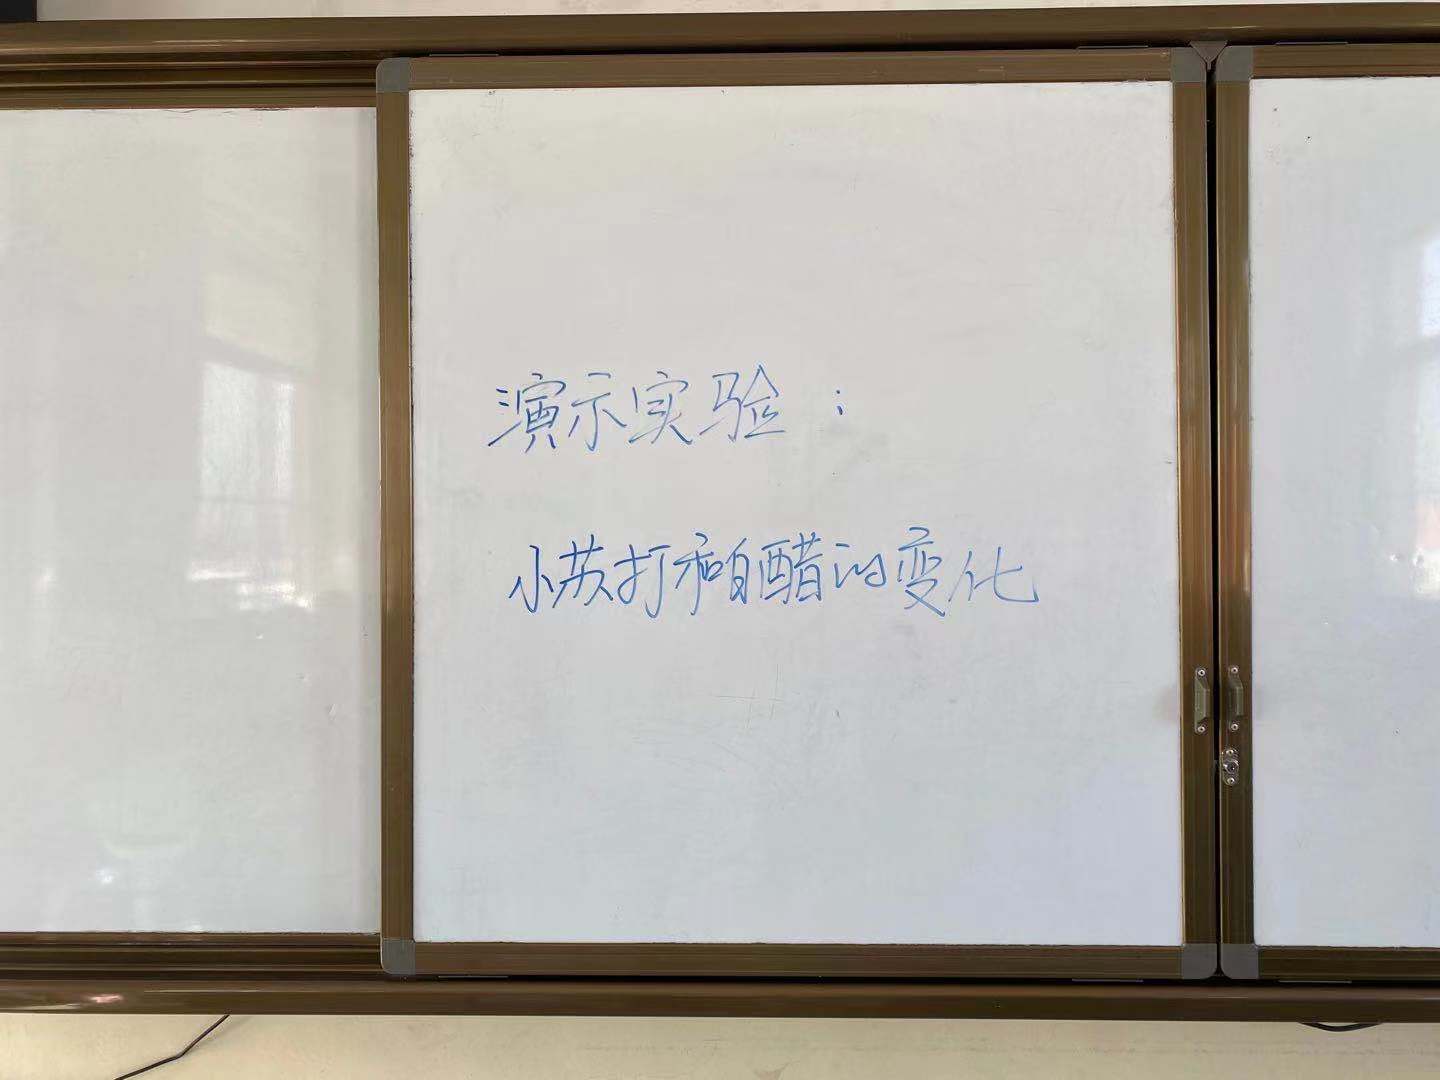 演示实验：
小苏打和白醋的变化